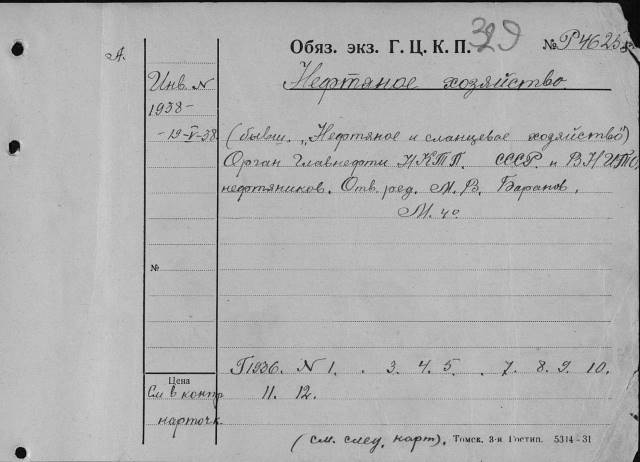 А.
Обяз. экз. Г. Ц. К. П. 329 № Р4625
Инв. №
Нефтяное хозяйство.
1938-
-19-V-38.
(бывш. „Нефтяное и сланцевое хозяйство")
Орган Главнефти НКТП. СССР. и ВНИТО
нефтяников. Отв. ред. М. В. Баранов.
М. 4°
№
Г1936. N 1. . 3. 4. 5. . 7. 8. 9. 10.
Цена
См в контр 11. 12.
карточк.
(см. след. карт). Томск. 3-я Гостип. 5314-31